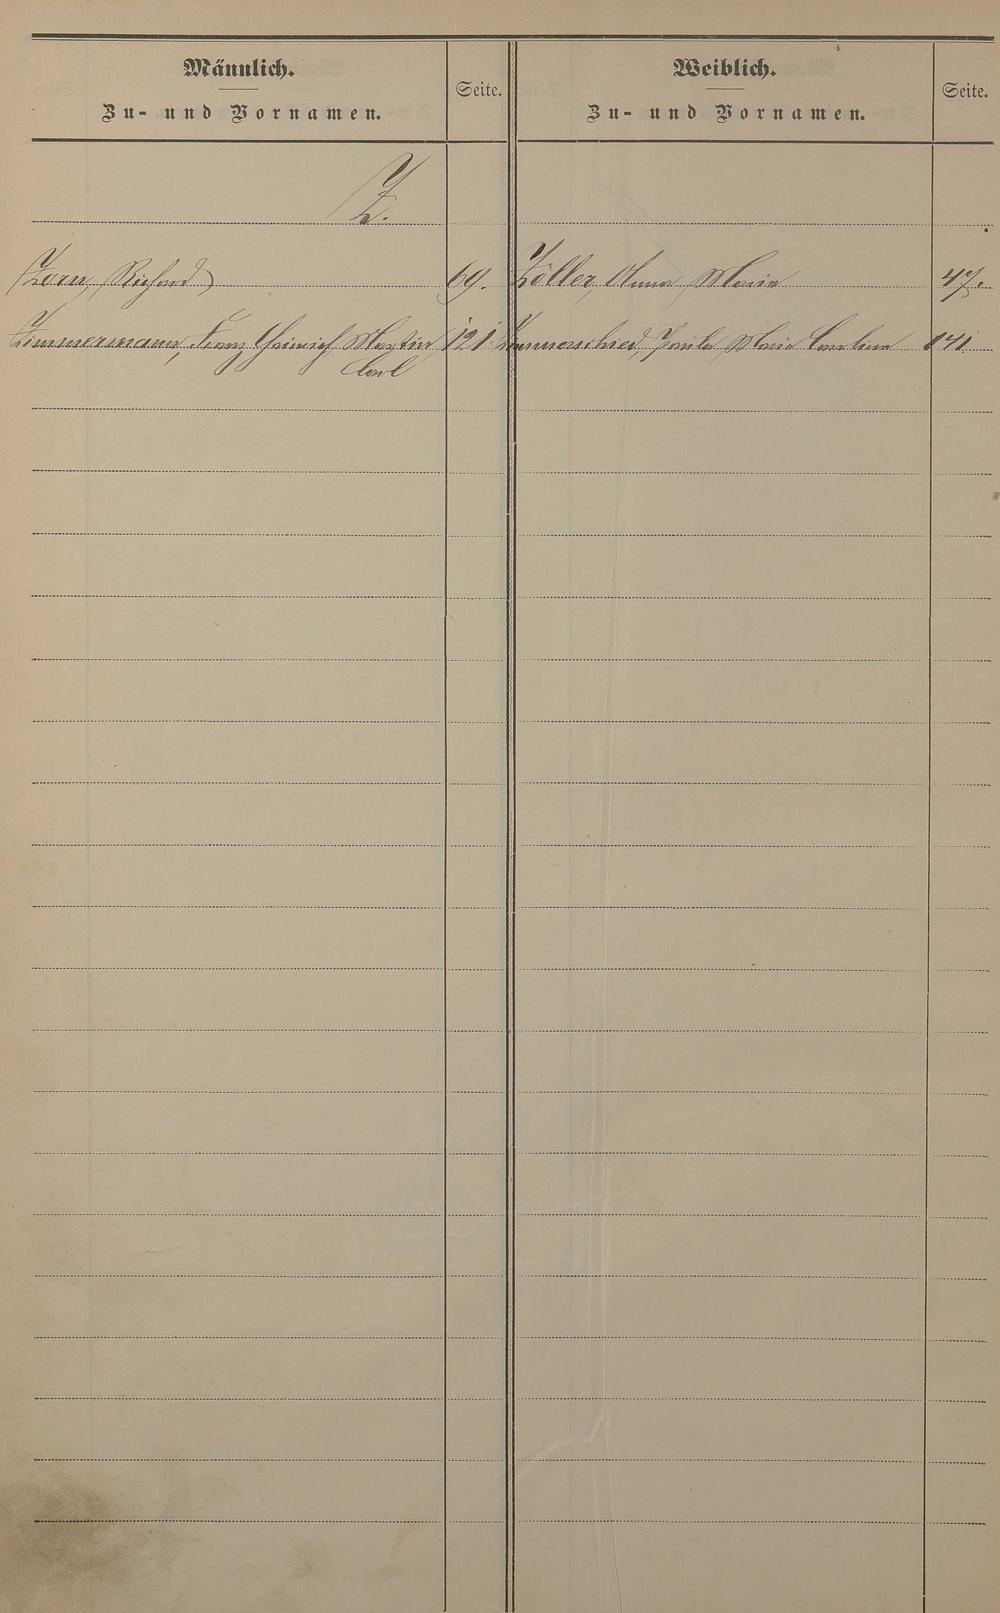 Männlich.
Zu- und Vornamen.
Seite.
Weiblich.
Zu- und Vornamen.
Seite.
Z.
Zorn, Richard 69. Zöller, Anna Maria 47.
Zimmermann, Franz Heinrich Martin 121 Paula Maria Carolina 141
Carl